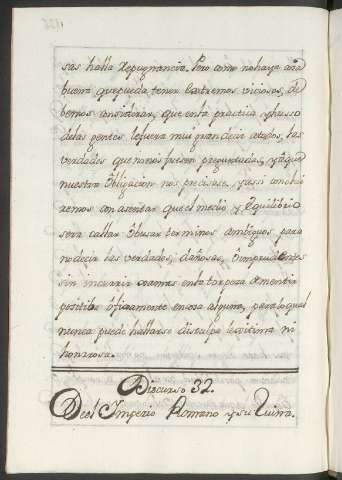 sas halla repugnancia. Pero como no haya cosa
buena que pueda tener extremos viciosos, de
bemos considerar, que en la practica y passo
de las gentes, le fuera mui gran decir a todos, las
verdades que no nos fueren preguntadas, y a que
nuestra obligacion nos precisase, y assi conclui
remos con asentar que el medio y Equilibrio
sera callar o busar terminos ambiguos para
no decir las verdades, dañosas, o imprudentes
sin incurrir en la torpeza de mentir
positiba oficiamente en cosa alguna, para lo qual
nunca puede hallarse disculpa lexitima ni
honrrosa.
Discurso 32.
Del Imperio Romano y su Ruina.